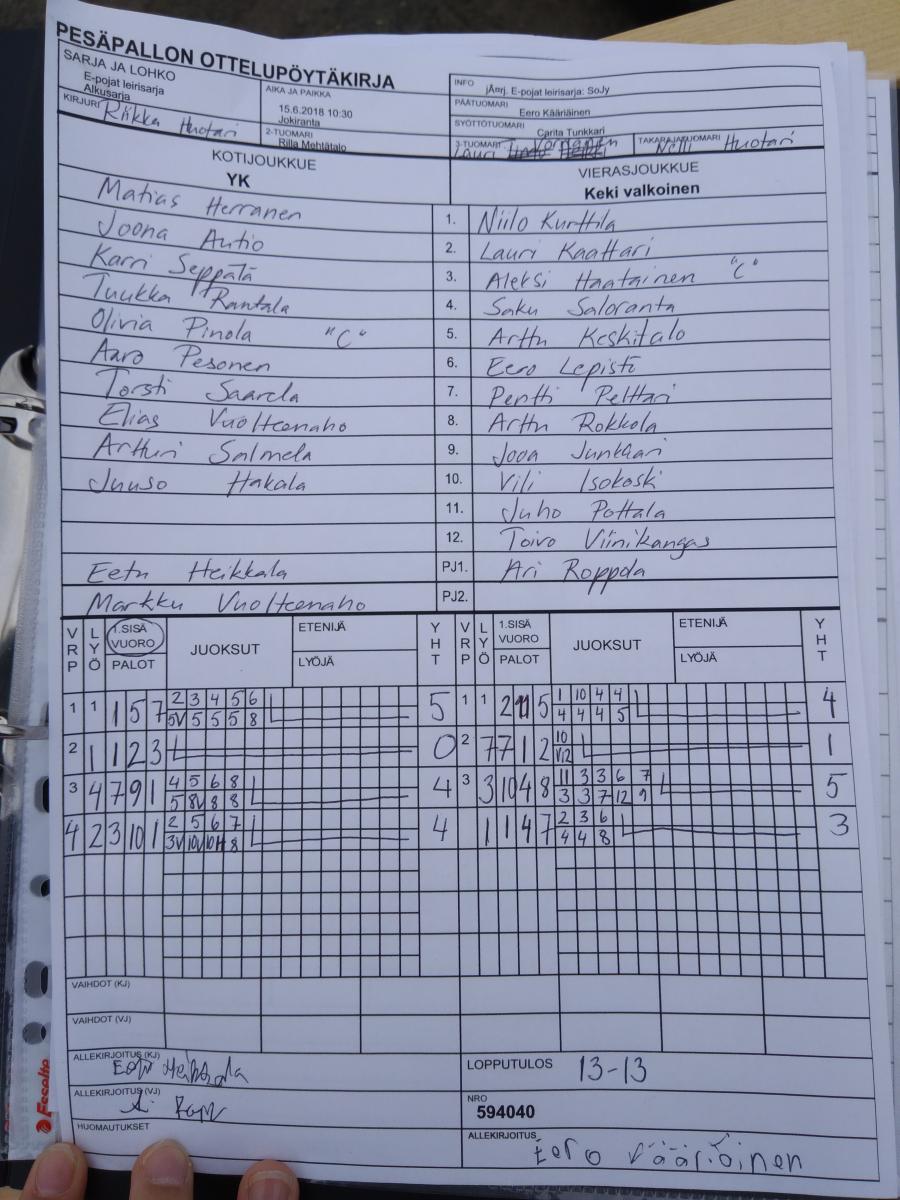 PESÄPALLON OTTELUPÖYTÄKIRJA
SARJA JA LOHKO
E-pojat leirisarja
Alkusarja
KIRJURI Riikka Huotari
AIKA JA PAIKKA
15.6.2018 10:30
Jokiranta
2-TUOMARI
Rilla Mehtätalo
INFO jÄmj. E-pojat leirisarja: SoJy
PÄÄTUOMARI
Eero Kääriäinen
SYÖTTÖTUOMARI
Carita Tunkkari
3-TUOMARI Lauri
TAKARAJATUOMARI Nelli Huotari
KOTIJOUKKUE
YK
VIERASJOUKKUE
Keki valkoinen
Matias Herranen 1. Niilo Kurttila
Joona Autio 2. Lauri Kaattari
Karri Seppälä 3. Aleksi Haatainen "C"
Tuukka Rantala 4. Saku Saloranta
Olivia Pinola "C" 5. Arttu Keskitalo
Aaro Pesonen 6. Eero Lepistö
Torsti Saarela 7. Pentti Pelttari
Elias Vuolteenaho 8. Arttu Rokkola
Artturi Salmela 9. Joona Junkkari
Juuso Hakala 10. Vili Isokoski
11. Juho Pottala
12. Toivo Viinikangas
Eetu Heikkala PJ1. Ari Roppola
Markku Vuolteenaho PJ2.
VRP LYÖ 1.SISÄ VUORO PALOT JUOKSUT ETENIJÄ LYÖJÄ YHT VRP LYÖ 1.SISÄ VUORO PALOT JUOKSUT ETENIJÄ LYÖJÄ YHT
1 1 1 5 7 2 3 4 5 6 5 1 1 2 11 5 1 10 4 4 4
5V 5 5 5 8 4 4 4 5
2 1 1 2 3 0 2 7 7 1 2 10 1
V12
3 4 7 9 1 4 5 6 8 4 3 3 10 4 8 11 3 3 6 7 5
5 8V 8 8 3 3 7 12 9
4 2 3 10 1 2 5 6 7 4 1 1 4 7 2 3 6 3
3V 10V 10H 8 4 4 8
VAIHDOT (KJ)
VAIHDOT (VJ)
ALLEKIRJOITUS (KJ) Eetu Heikkala
ALLEKIRJOITUS (VJ)
HUOMAUTUKSET
LOPPUTULOS 13-13
NRO
594040
ALLEKIRJOITUS Eero Kääriäinen
Esselte